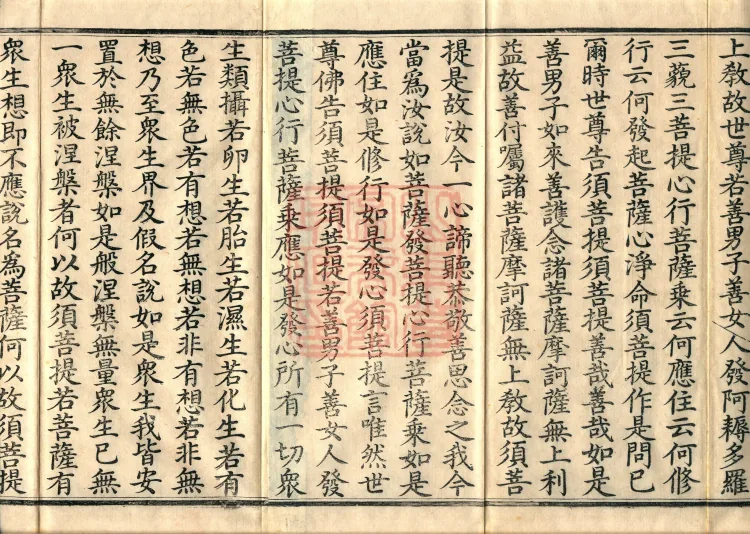 上教故世尊若善男子善女人發阿耨多羅
三藐三菩提心行菩薩乘云何應住云何修
行云何發起菩薩心淨命須菩提作是問已
爾時世尊告須菩提須菩提善哉善哉如是
善男子如來善護念諸菩薩摩訶薩無上利
益故善付囑諸菩薩摩訶薩無上教故須菩
提是故汝今一心諦聽恭敬善思念之我今
當爲汝說如菩薩發菩提心行菩薩乘如是
應住如是修行如是發心須菩提言唯然世
尊佛告須菩提須菩提若善男子善女人發
菩提心行菩薩乘應如是發心所有一切衆
生類攝若卵生若胎生若濕生若化生若有
色若無色若有想若無想若非有想若非無
想乃至衆生界及假名說如是衆生我皆安
置於無餘涅槃如是般涅槃無量衆生已無
一衆生被涅槃者何以故須菩提若菩薩有
衆生想即不應說名爲菩薩何以故須菩提